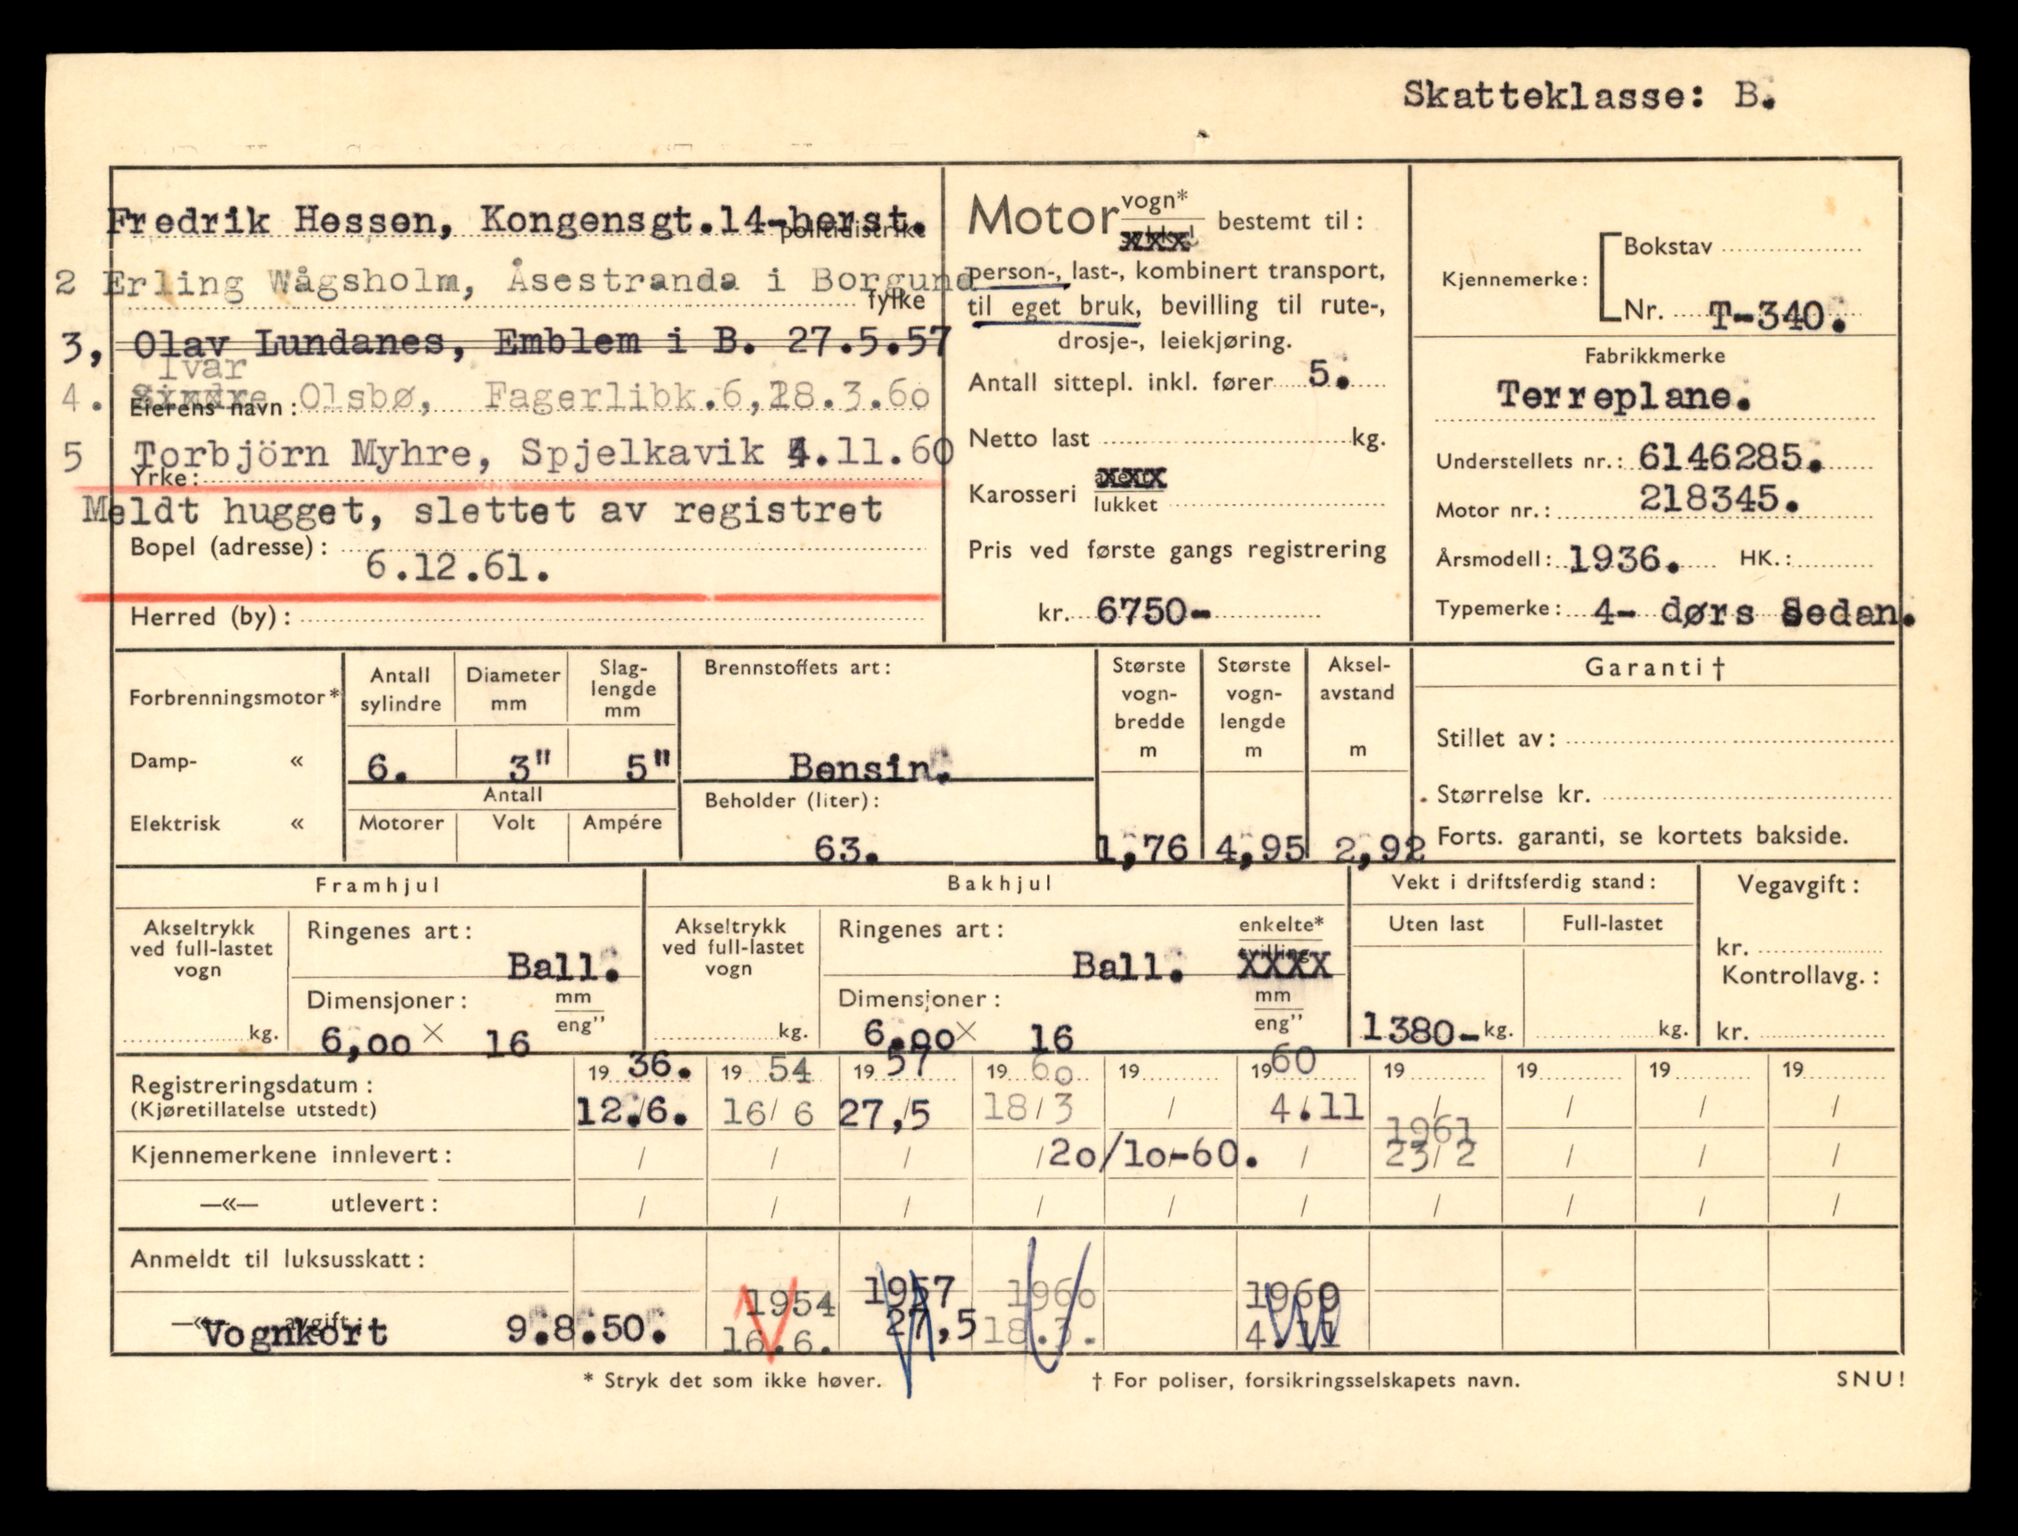 Skatteklasse: B.
Fredrik Hessen, Kongensgt.14-herst.
politidistrikt
2 Erling Wågsholm, Åsestranda i Borgund
fylke
3, Olav Lundanes, Emblem i B. 27.5.57
Ivar
4. Sindre Olsbø, Fagerlibk.6, 18.3.60
Eierens navn:
5 Torbjörn Myhre, Spjelkavik 4.11.60
Yrke:
Meldt hugget, slettet av registret
Bopel (adresse):
6.12.61.
Herred (by):
Motor vogn* xxx bestemt til:
person-, last-, kombinert transport,
til eget bruk, bevilling til rute-,
drosje-, leiekjøring.
Antall sittepl. inkl. fører 5.
Netto last kg.
Karosseri xxx lukket
Pris ved første gangs registrering
kr. 6750-
Kjennemerke: Bokstav
Nr. T-340.
Fabrikkmerke
Terreplane.
Understellets nr.: 6146285.
Motor nr.: 218345.
Årsmodell: 1936. HK.:
Typemerke: 4- dørs Sedan.
Forbrenningsmotor*
Damp- «
Elektrisk «
Antall sylindre
Diameter mm
Slaglengde mm
6. 3" 5"
Antall
Motorer Volt Ampére
Brennstoffets art:
Bensin.
Beholder (liter):
63.
Største vognbredde m
1,76
Største vognlengde m
4,95
Akselavstand m
2,92
Garanti †
Stillet av:
Størrelse kr.
Forts. garanti, se kortets bakside.
Framhjul
Akseltrykk ved full-lastet vogn
kg.
Ringenes art:
Ball.
Dimensjoner: mm eng"
6,00 × 16
Bakhjul
Akseltrykk ved full-lastet vogn
kg.
Ringenes art: enkelte*
Ball. XXXX
Dimensjoner: mm eng"
6.00 × 16
Vekt i driftsferdig stand:
Uten last Full-lastet
1380- kg. kg.
Vegavgift:
kr.
Kontrollavg.:
kr.
Registreringsdatum: 19 36. 19 54 19 57 19 60 19 19 60 19 19 19 19
(Kjøretillatelse utstedt) 12./6. 16/6 27,/5 18/3 / 4.11 / / / /
1961
Kjennemerkene innlevert: / / / / 20/10-60. / 23/2 / / /
—«— utlevert: / / / / / / / / / /
Anmeldt til luksusskatt:
1954 1957 1960 1960
—«— avgift:
Vognkort 9.8.50. 16.6. 27,5 18.3. 4.11
* Stryk det som ikke høver.
† For poliser, forsikringsselskapets navn.
SNU!